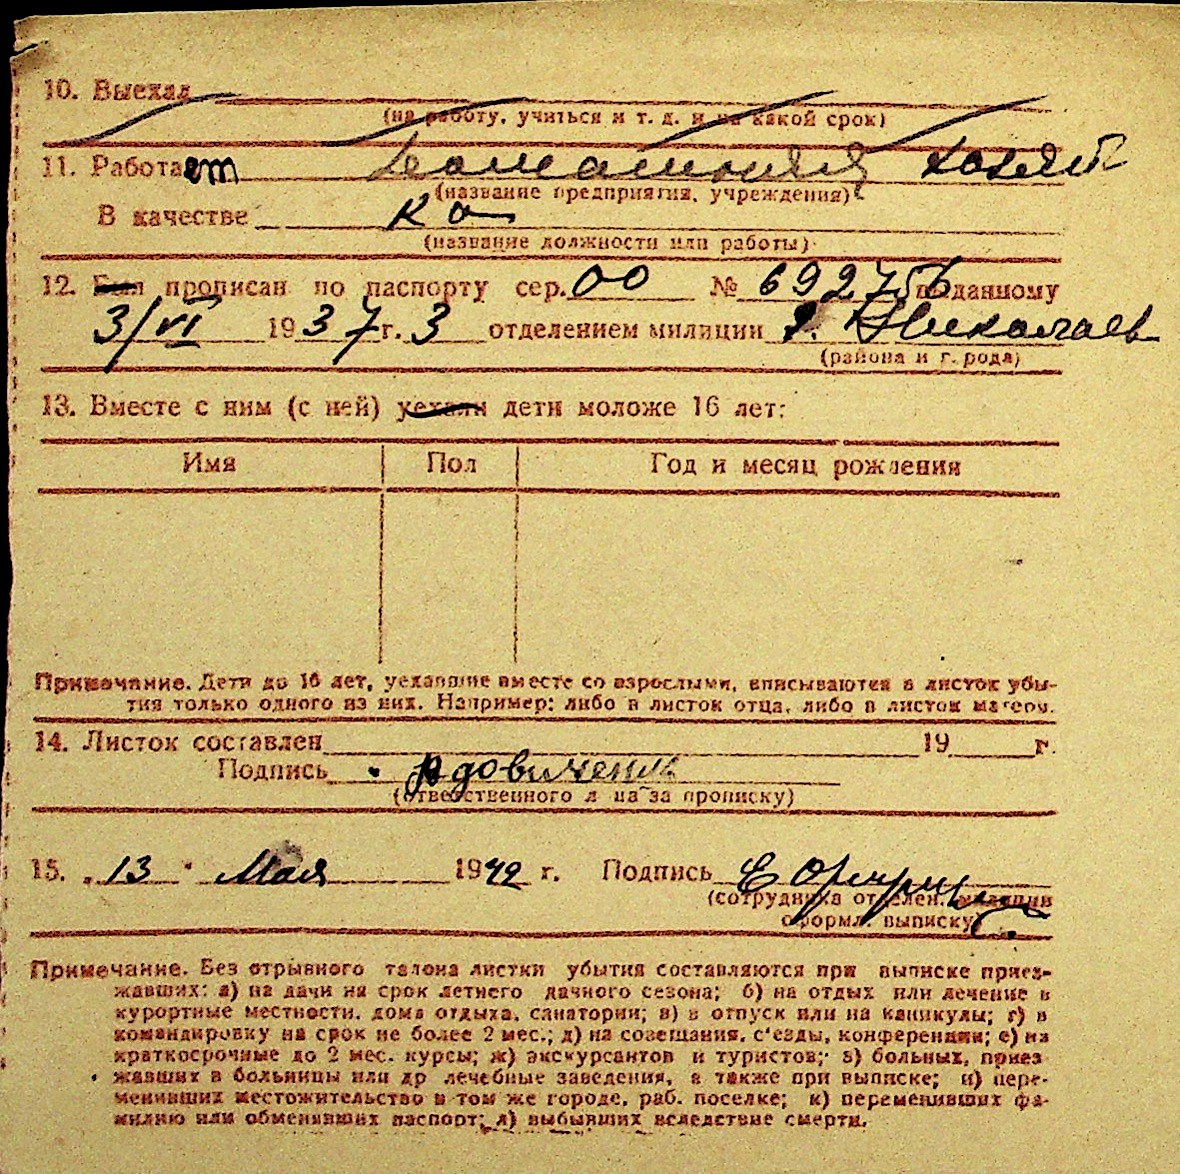 10. Выехал
(на работу, учиться и т. д. и на какой срок)
11. Работает домашняя хозяй
(название предприятия, учреждения)
В качестве ка
(название должности или работы)
12. Был прописан по паспорту сер. ОО № 692756 выданному
3/VI 1937 г. 3 отделением милиции г. Николаев
(района и города)
13. Вместе с ним (с ней) уехали дети моложе 16 лет:
Имя Пол Год и месяц рождения
Примечание. Дети до 16 лет, уехавшие вместе со взрослыми, вписываются в листок убы-
тия только одного из них. Например: либо в листок отца, либо в листок матери.
14. Листок составлен 19 г.
Подпись Вдовиченк
(ответственного л на за прописку)
15. „13" Мая 1942 г. Подпись
(сотрудника отделен. милиции
оформл. выписку)
Примечание. Без отрывного талона листки убытия составляются при выписке приез-
жавших: а) на дачи на срок летнего дачного сезона; б) на отдых или лечение в
курортные местности, дома отдыха, санатории; в) в отпуск или на каникулы; г) в
командировку на срок не более 2 мес.; д) на совещания, с'езды, конференции; е) на
краткосрочные до 2 мес. курсы; ж) экскурсантов и туристов; з) больных, приез
жавших в больницы или др лечебные заведения, а также при выписке; и) пере-
менивших местожительство в том же городе, раб. поселке; к) переменивших фа-
милию или обменявших паспорт; л) выбывших вследствие смерти.